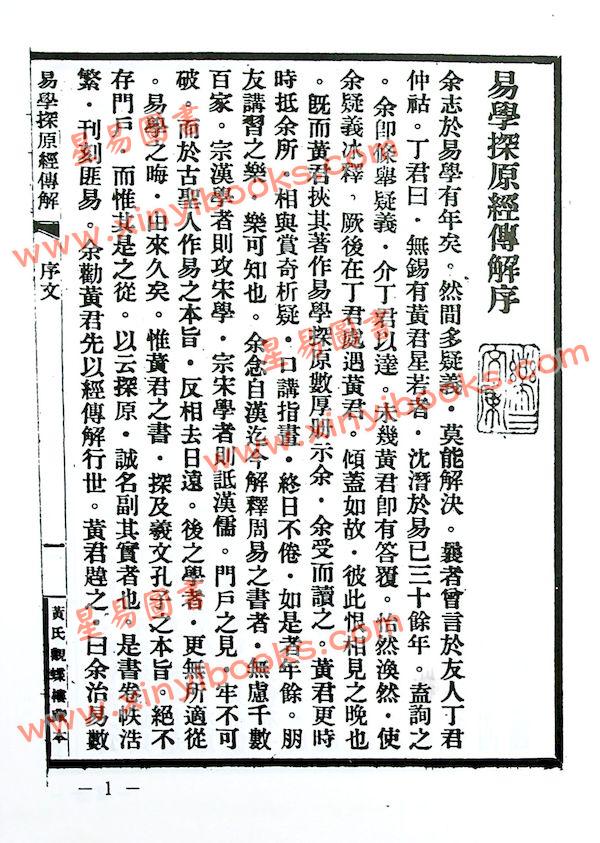 易學探原經傳解序
余志於易學有年矣。然間多疑義。莫能解決。曩者曾言於友人丁君
仲祜。丁君曰。無錫有黃君星若者。沈潛於易已三十餘年。盍詢之
。余卽條舉疑義。介丁君以達。未幾黃君卽有答覆。怡然渙然。使
余疑義冰釋。厥後在丁君處遇黃君。傾蓋如故。彼此恨相見之晚也
。旣而黃君挾其著作易學探原數厚册示余。余受而讀之。黃君更時
時抵余所。相與賞奇析疑。口講指畫。終日不倦。如是者年餘。朋
友講習之樂。樂可知也。余念自漢迄今解釋周易之書者。無慮千數
百家。宗漢學者則攻宋學。宗宋學者則詆漢儒。門戶之見。牢不可
破。而於古聖人作易之本旨。反相去日遠。後之學者。更無所適從
。易學之晦。由來久矣。惟黃君之書。探及羲文孔子之本旨。絕不
存門戶。而惟其是之從。以云探原。誠名副其實者也。是書卷帙浩
繁。刊刻匪易。余勸黃君先以經傳解行世。黃君韙之。曰余治易數
易學探原經傳解
序文
一
黃氏觀蝶樓藏本
- 1 -
星易圖書
www.xinyibooks.com
星易圖書
www.xinyibooks.com
星易圖書
www.xinyibooks.com